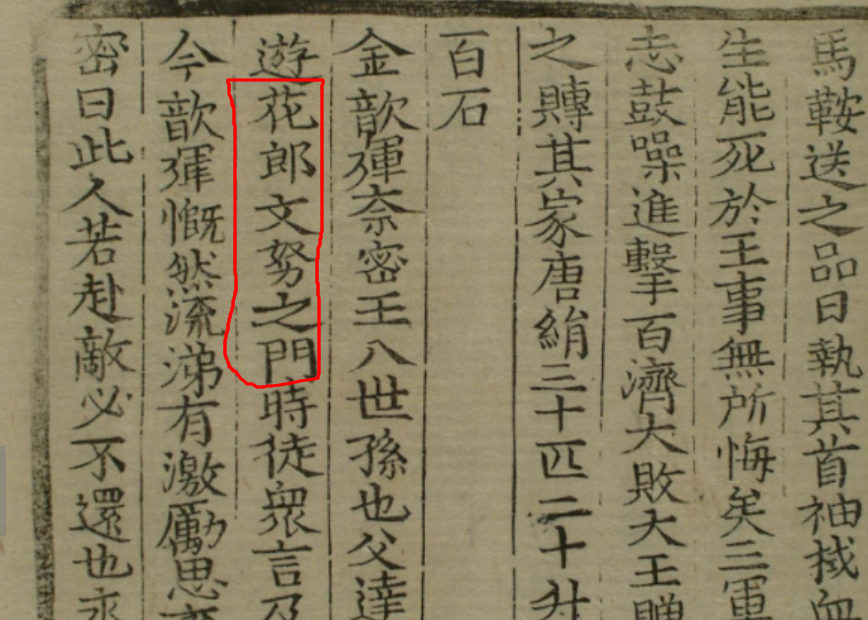 馬鞍送之品日執其首袖拭血
生能死於王事無所悔矣三軍
志鼓噪進擊百濟大敗大王贈
之賻其家唐絹三十匹二十升
百石
金歆奈密王八世孫也父達
遊花郎文努之門時徒衆言及
今歆慨然流涕有激勵思齊
密曰此人若赴敵必不還也